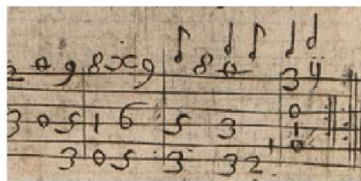 2 0 9 8 x 9 8 0 3 4
3 0 5 1 6 5 3 0
1
3 0 5 3 3 2 1 0